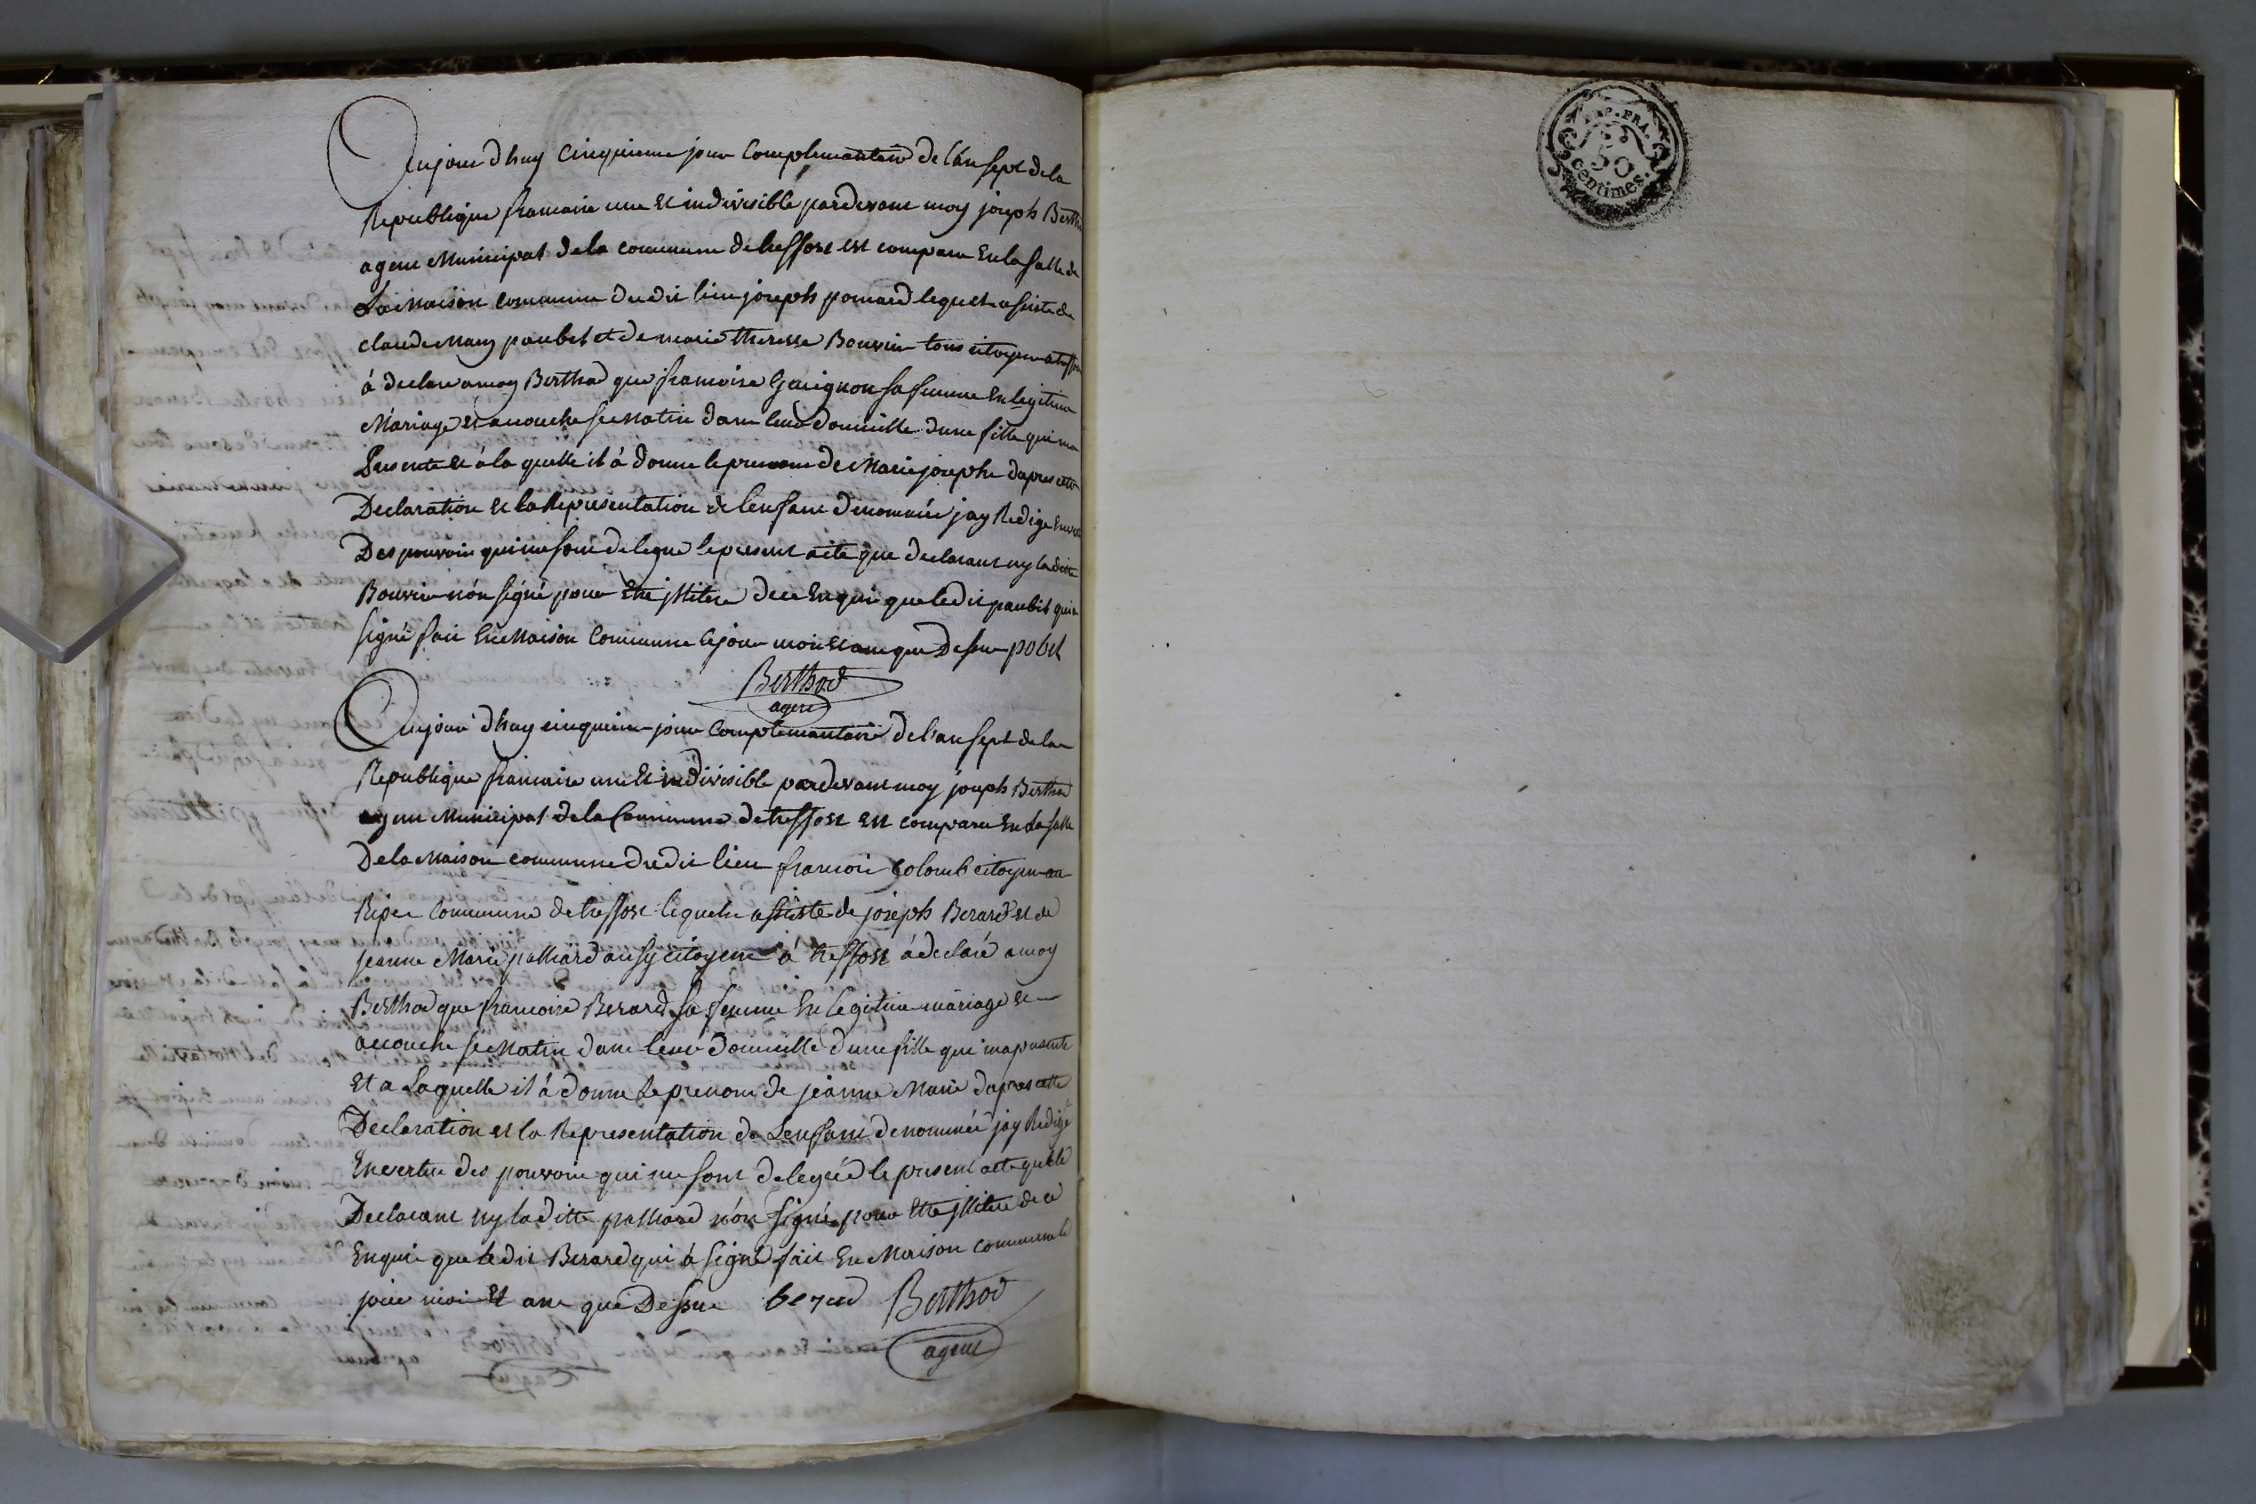 Aujourdhuy cinquieme jour complemantaire de l'an sept de la
Republique francaise une et indivisible pardevant moy joseph Bertho
agent Municipal de la commune de treffort est comparu En la salle de
La Maison commune dudit lieu joseph ponard lequel assiste de
claude Marq paubel et de marie theresse Bouvier tous citoyen a treffor
à declare a moy Berthod que francoise Gavignon sa femme En legitime
Mariage et accouche se Matin dans leur domicille dune fille qui ma
Presente et à la quelle il à donne le prenom de Marie josephe dapres cette
Declaration et la Representation de l'enfant denommée jay Redige En ver
Des pouvoir qui me sont delegue le present acte que declarant ny la ditte
Bouvier n'on signé pour Etre jllitere de ce Enquis que ledit paubel qui a
signé fait En Maison Commune le jour mois et ans que Dessus pobel
Berthod
agent
Aujourdhuy cinquieme jour complemantaire de l'an sept de la
Republique francaise une Et indivisible pardevant moy joseph Berthod
agent Municipal de la Commune de treffort Est comparu En La salle
De la Maison commune dudit lieu francois Colomb citoyen au
commune de treffort lequel assiste de joseph Berard et de
jeanne Marie palliard ausy citoyens à treffort à declaré a moy
Berthod que francoise Berard sa femme En legitime mariage et
accouche se Matin dans leur Domicille d'une fille qui ma presente
Et a Laquelle il à donne Le prenom de jeanne Marie dapres cette
Declaration et la Representation de Lenfant denommée jay Redigé
En vertu des pouvoir qui me sont deleguéd le present acte que le
Declarant ny la ditte palliard n'on signé pour Etre jlliteré de ce
Enquis que ledit Berard qui à signé fait En Maison commune le
jour mois Et ans que Dessus berard Berthod
agent
REP. FRA.
50
centimes.